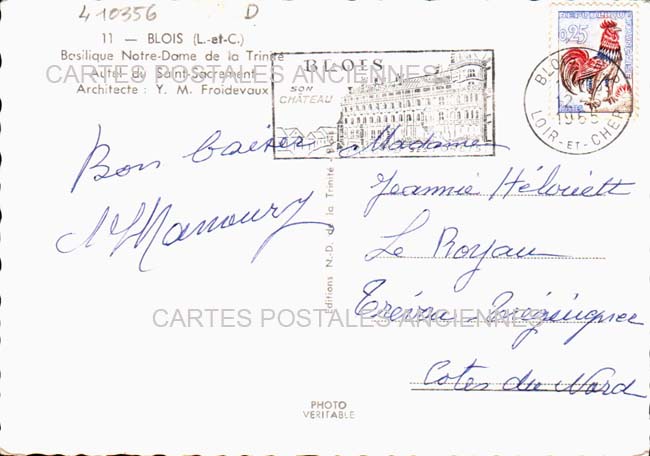 410356 D
11 — BLOIS (L.-et-C.)
Basilique Notre-Dame de la Trinité
Autel du Saint-Sacrement
Architecte : Y. M. Froidevaux
CARTES POSTALES ANCIENNES
BLOIS
SON
CHÂTEAU
REPUBLIQUE
0,25
BLOIS
1965
LOIR-ET-CHER
Bon baiser
Manoury
Editions N.-D. de la Trinité - Blois
Madame
Jeannie
Le Royau
CARTES POSTALES ANCIENNES
Cotes du Nord
PHOTO
VERITABLE